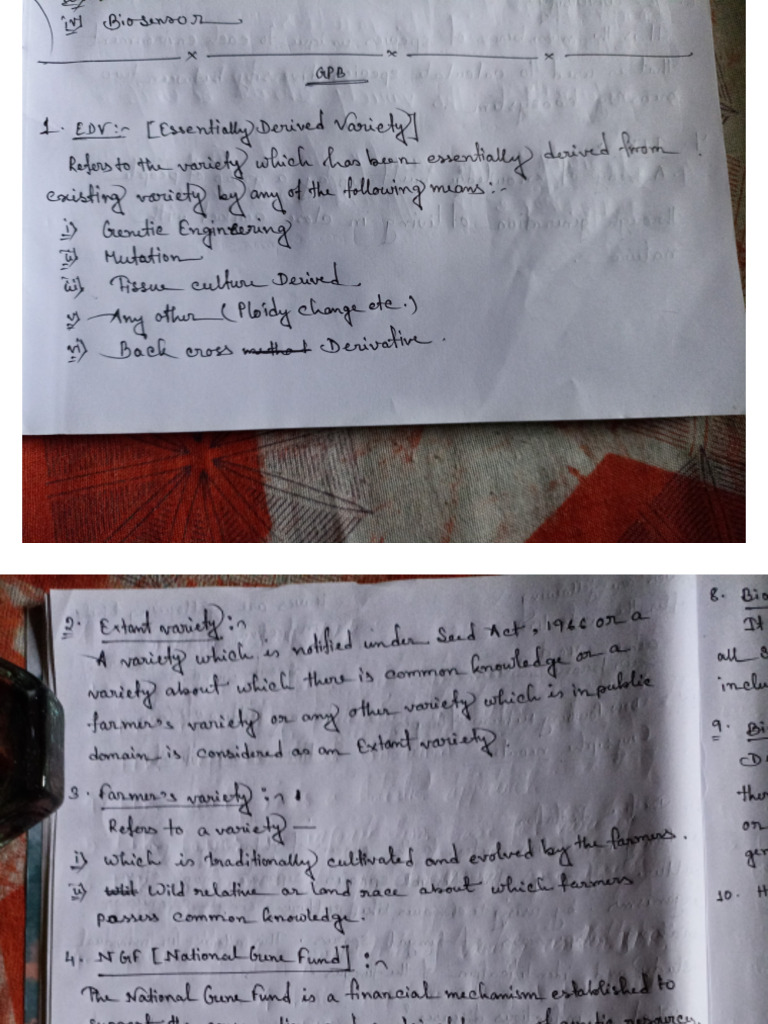 iv) Biosensor
GPB
1. EDV:- [Essentially Derived Variety]
Refers to the variety which has been essentially derived from
existing variety by any of the following means:-
i) Genetic Engineering
ii) Mutation
iii) Tissue culture Derived
v) Any other (Ploidy change etc.)
vi) Back cross Derivative.
2. Extant variety:~
A variety which is notified under Seed Act, 1966 or a
variety about which there is common knowledge or a
farmer's variety or any other variety which is in public
domain is considered as an Extant variety.
3. Farmer's variety:~
Refers to a variety —
i) Which is traditionally cultivated and evolved by the farmers.
ii) Wild relative or Land race about which farmers
passess common knowledge.
4. NGF [National Gene Fund]:~
The National Gene Fund is a financial mechanism established to
8. Bio
It
all
inclu
9. Bi
D
ther
or
gen
10. H